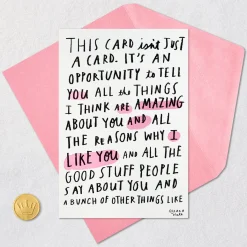 THIS CARD isn't JUST
A CARD. IT'S AN
OPPORTUNITY to TELL
YOU ALL the THINGS
I THINK are AMAZING
ABOUT YOU and ALL
THE REASONS WHY I
LIKE YOU and ALL THE
GOOD STUFF PEOPLE
SAY ABOUT YOU AND
A BUNCH OF OTHER THINGS LIKE